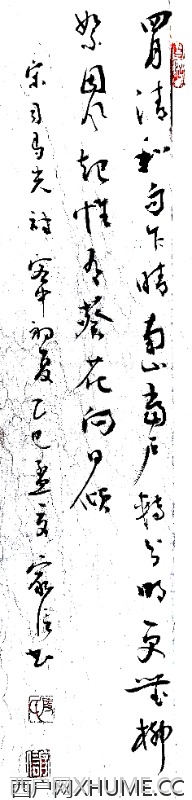 四月清和雨乍晴南山當户轉分明更無柳
絮因风起惟有葵花向日倾
宋司马光诗客中初夏乙巳孟夏家信书
西户网XHUME.CC